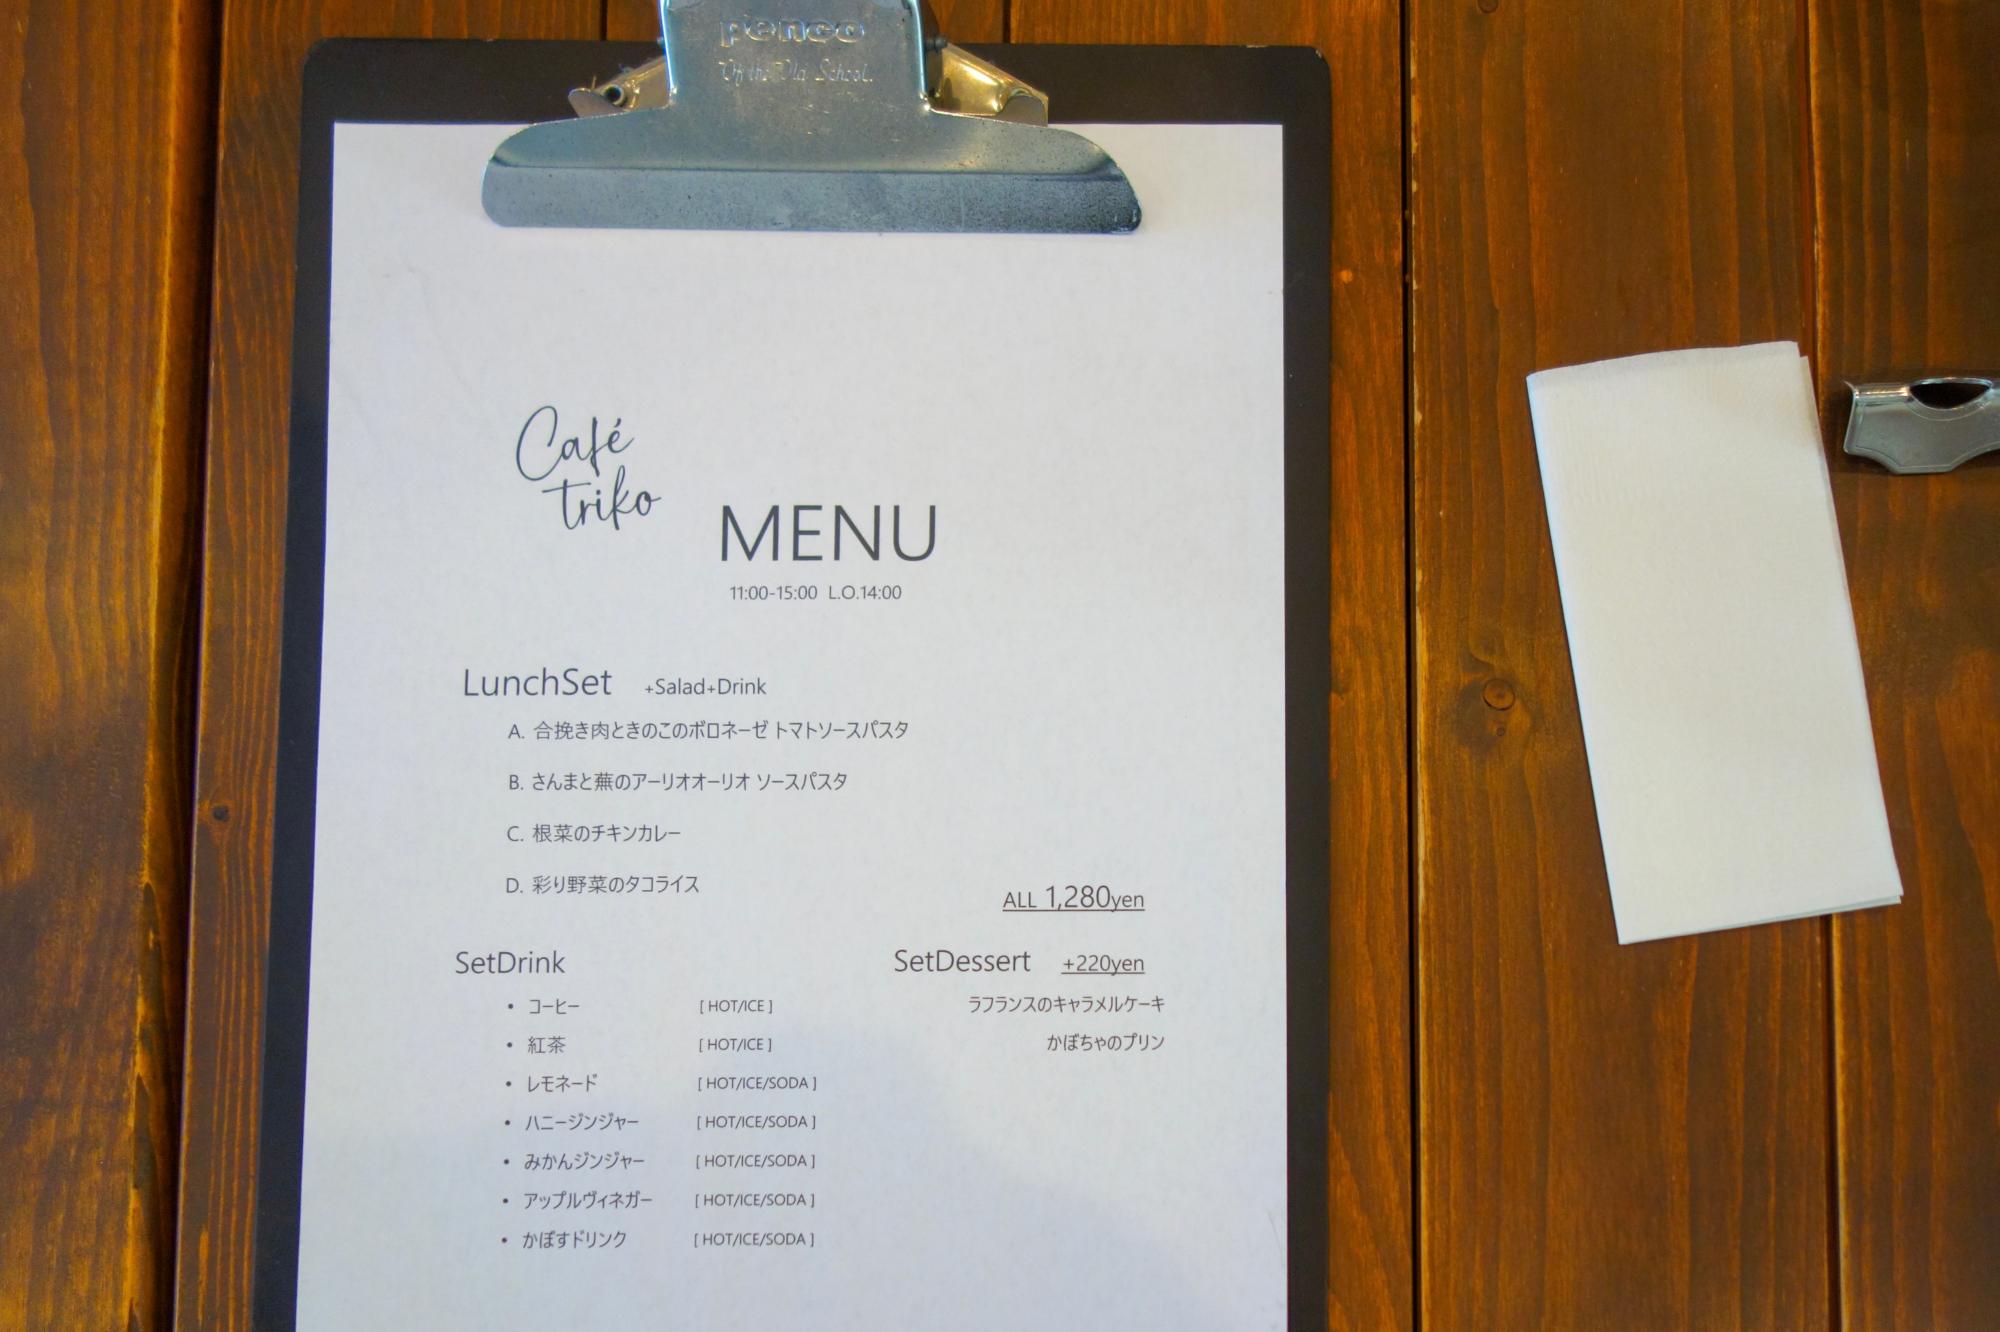 penco
Off the Old School.
Café
triko
MENU
11:00-15:00 L.O.14:00
LunchSet +Salad+Drink
A. 合挽き肉ときのこのボロネーゼ トマトソースパスタ
B. さんまと蕪のアーリオオーリオ ソースパスタ
C. 根菜のチキンカレー
D. 彩り野菜のタコライス
ALL 1,280yen
SetDrink
• コーヒー [ HOT/ICE ]
• 紅茶 [ HOT/ICE ]
• レモネード [ HOT/ICE/SODA ]
• ハニージンジャー [ HOT/ICE/SODA ]
• みかんジンジャー [ HOT/ICE/SODA ]
• アップルヴィネガー [ HOT/ICE/SODA ]
• かぼすドリンク [ HOT/ICE/SODA ]
SetDessert +220yen
ラフランスのキャラメルケーキ
かぼちゃのプリン